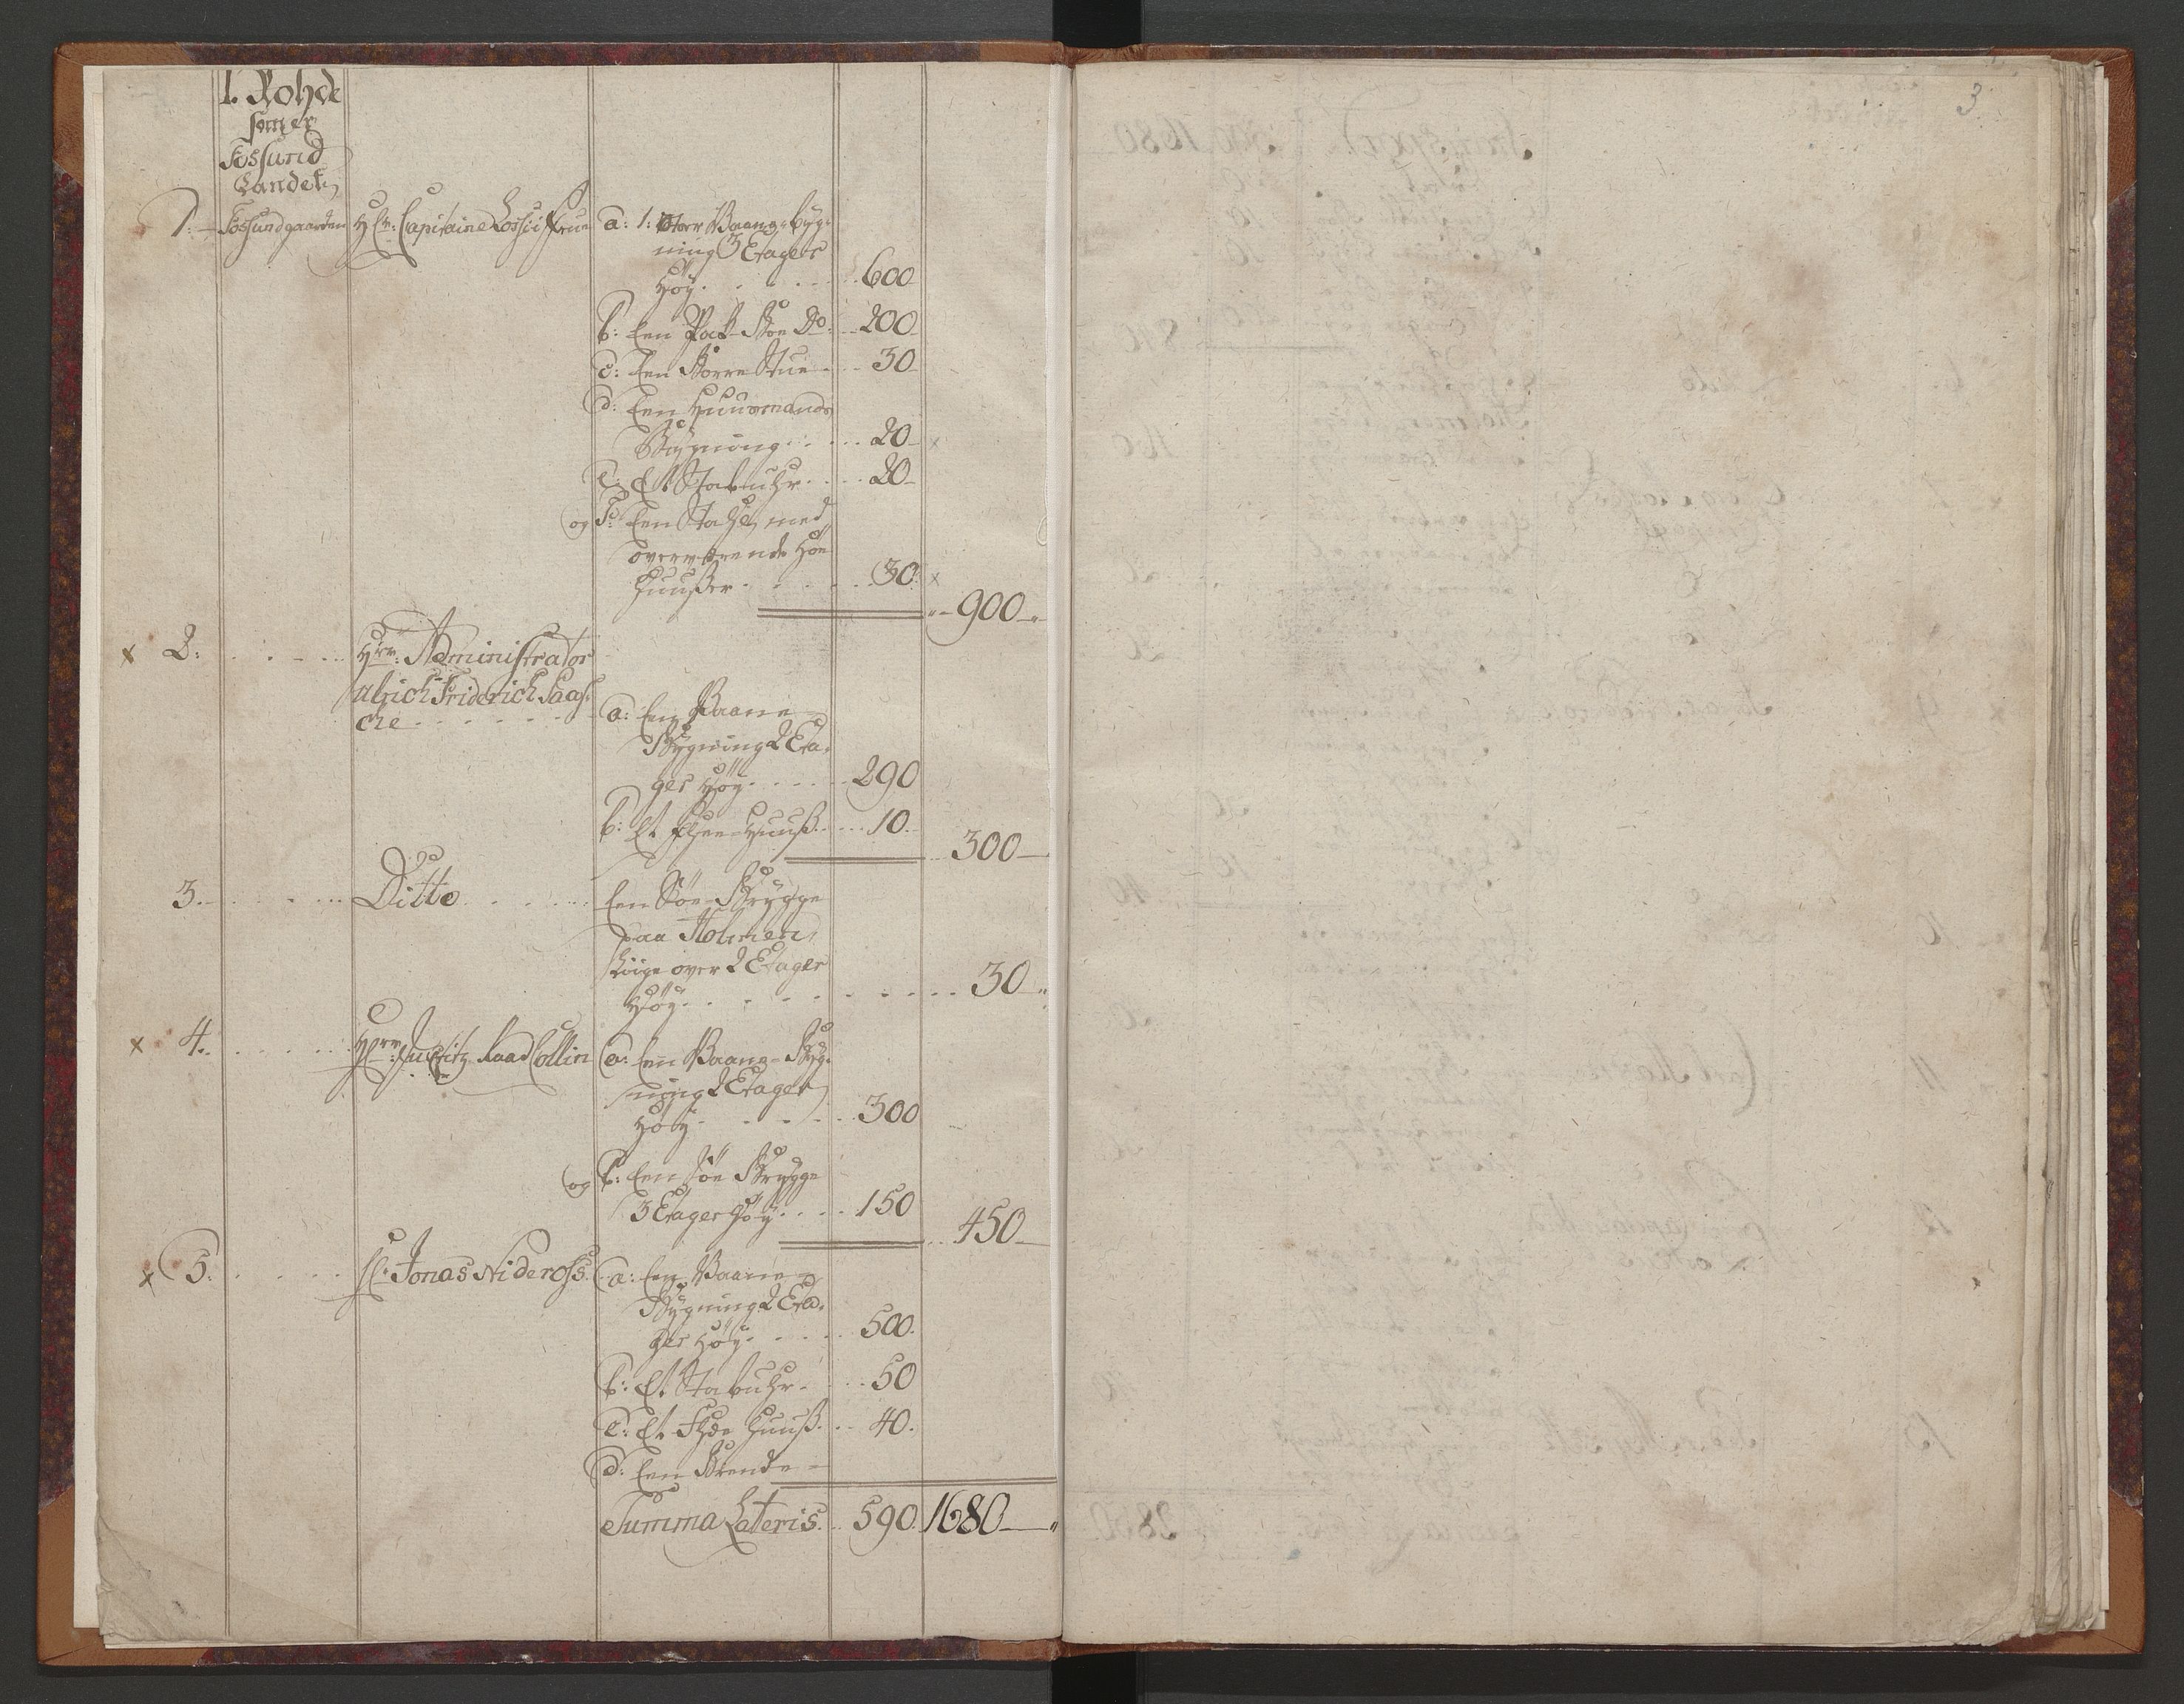 3.
1. Rohde
Fossund
Landet
1. Fossundgaarden Hr: Capitaine Lossii Frue a: 1: stor Vaane-byg-
ning 3 Etager
Høy . . . . 600
b: Een Pak-Boe Do. 200
c: Een Større Stue . . 30
d: Een Huusmands
Bÿgning . . . 20 x
e: Et Stabuhr . . . 20
og f: Een Stald, med
overværende Høe
Huußer . . . . 30. x
900
x 2: Hrr: Administrator
Ulrich Friderich Saas-
che . . . . .
a: Een Vaane-
Bÿgning 2 Eta-
ges Høÿ . . . . 290
b: Et Huuß . . . 10.
300
3. Ditto . . . . Een Søe-Brygge
paa Holmen,
liige over 2 Etager
Høÿ . . . . . . . 30
x 4. Hrr: Justitz Raad Collin a: Een Vaane-Bÿg-
ning 2 Etager
Høÿ . . . . . 300
og b: Een Søe Brygge
3 Etager Høÿ . . . 150
450
x 5. Sl: Jonas Nideross. a: Een Vaane-
Bÿgning 2 Eta-
ger Høÿ . . . . 500.
b: Et Stabuhr . . . 50
c: Et Huuß . . 40.
d: Een
Summa Lateris . . 590. 1680